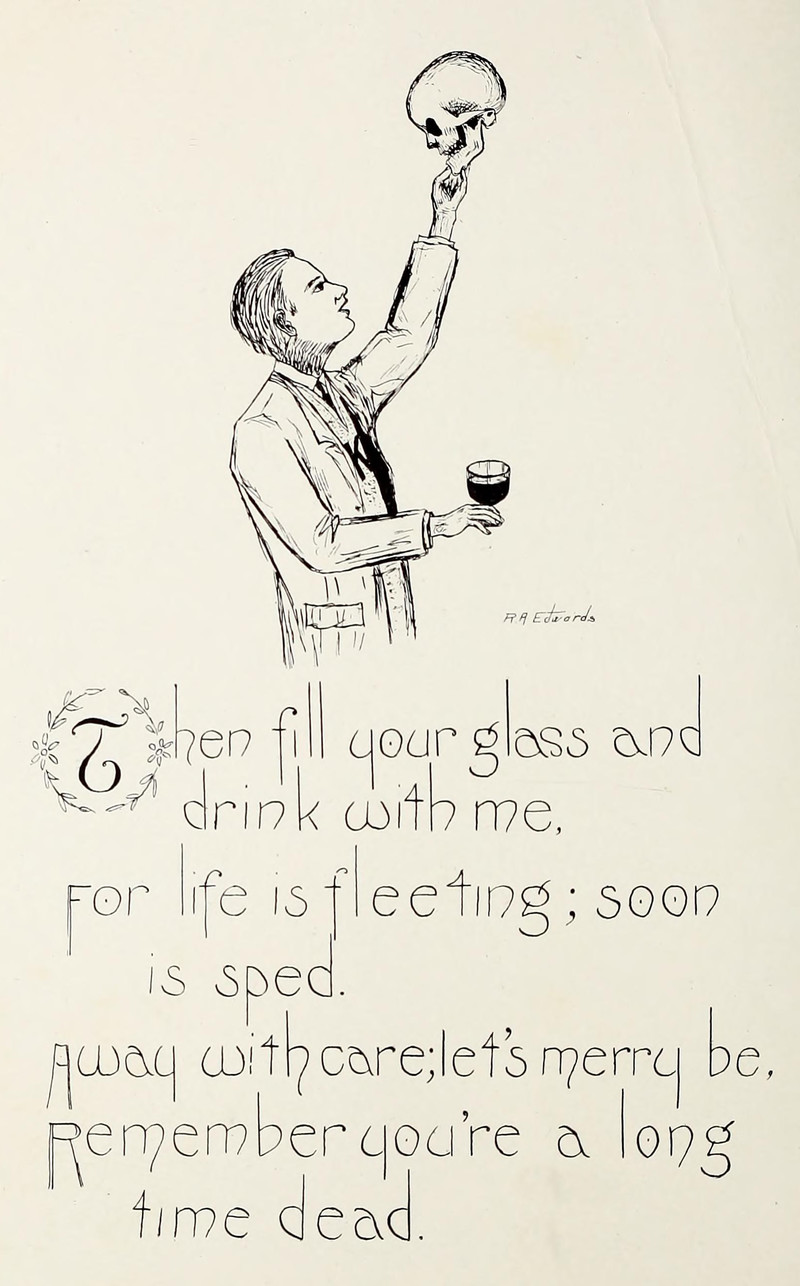 R A Edwards
Then fill your glass and
drink with me,
For life is fleeting; soon
is sped.
Away with care; let's merry be,
Remember you're a long
time dead.